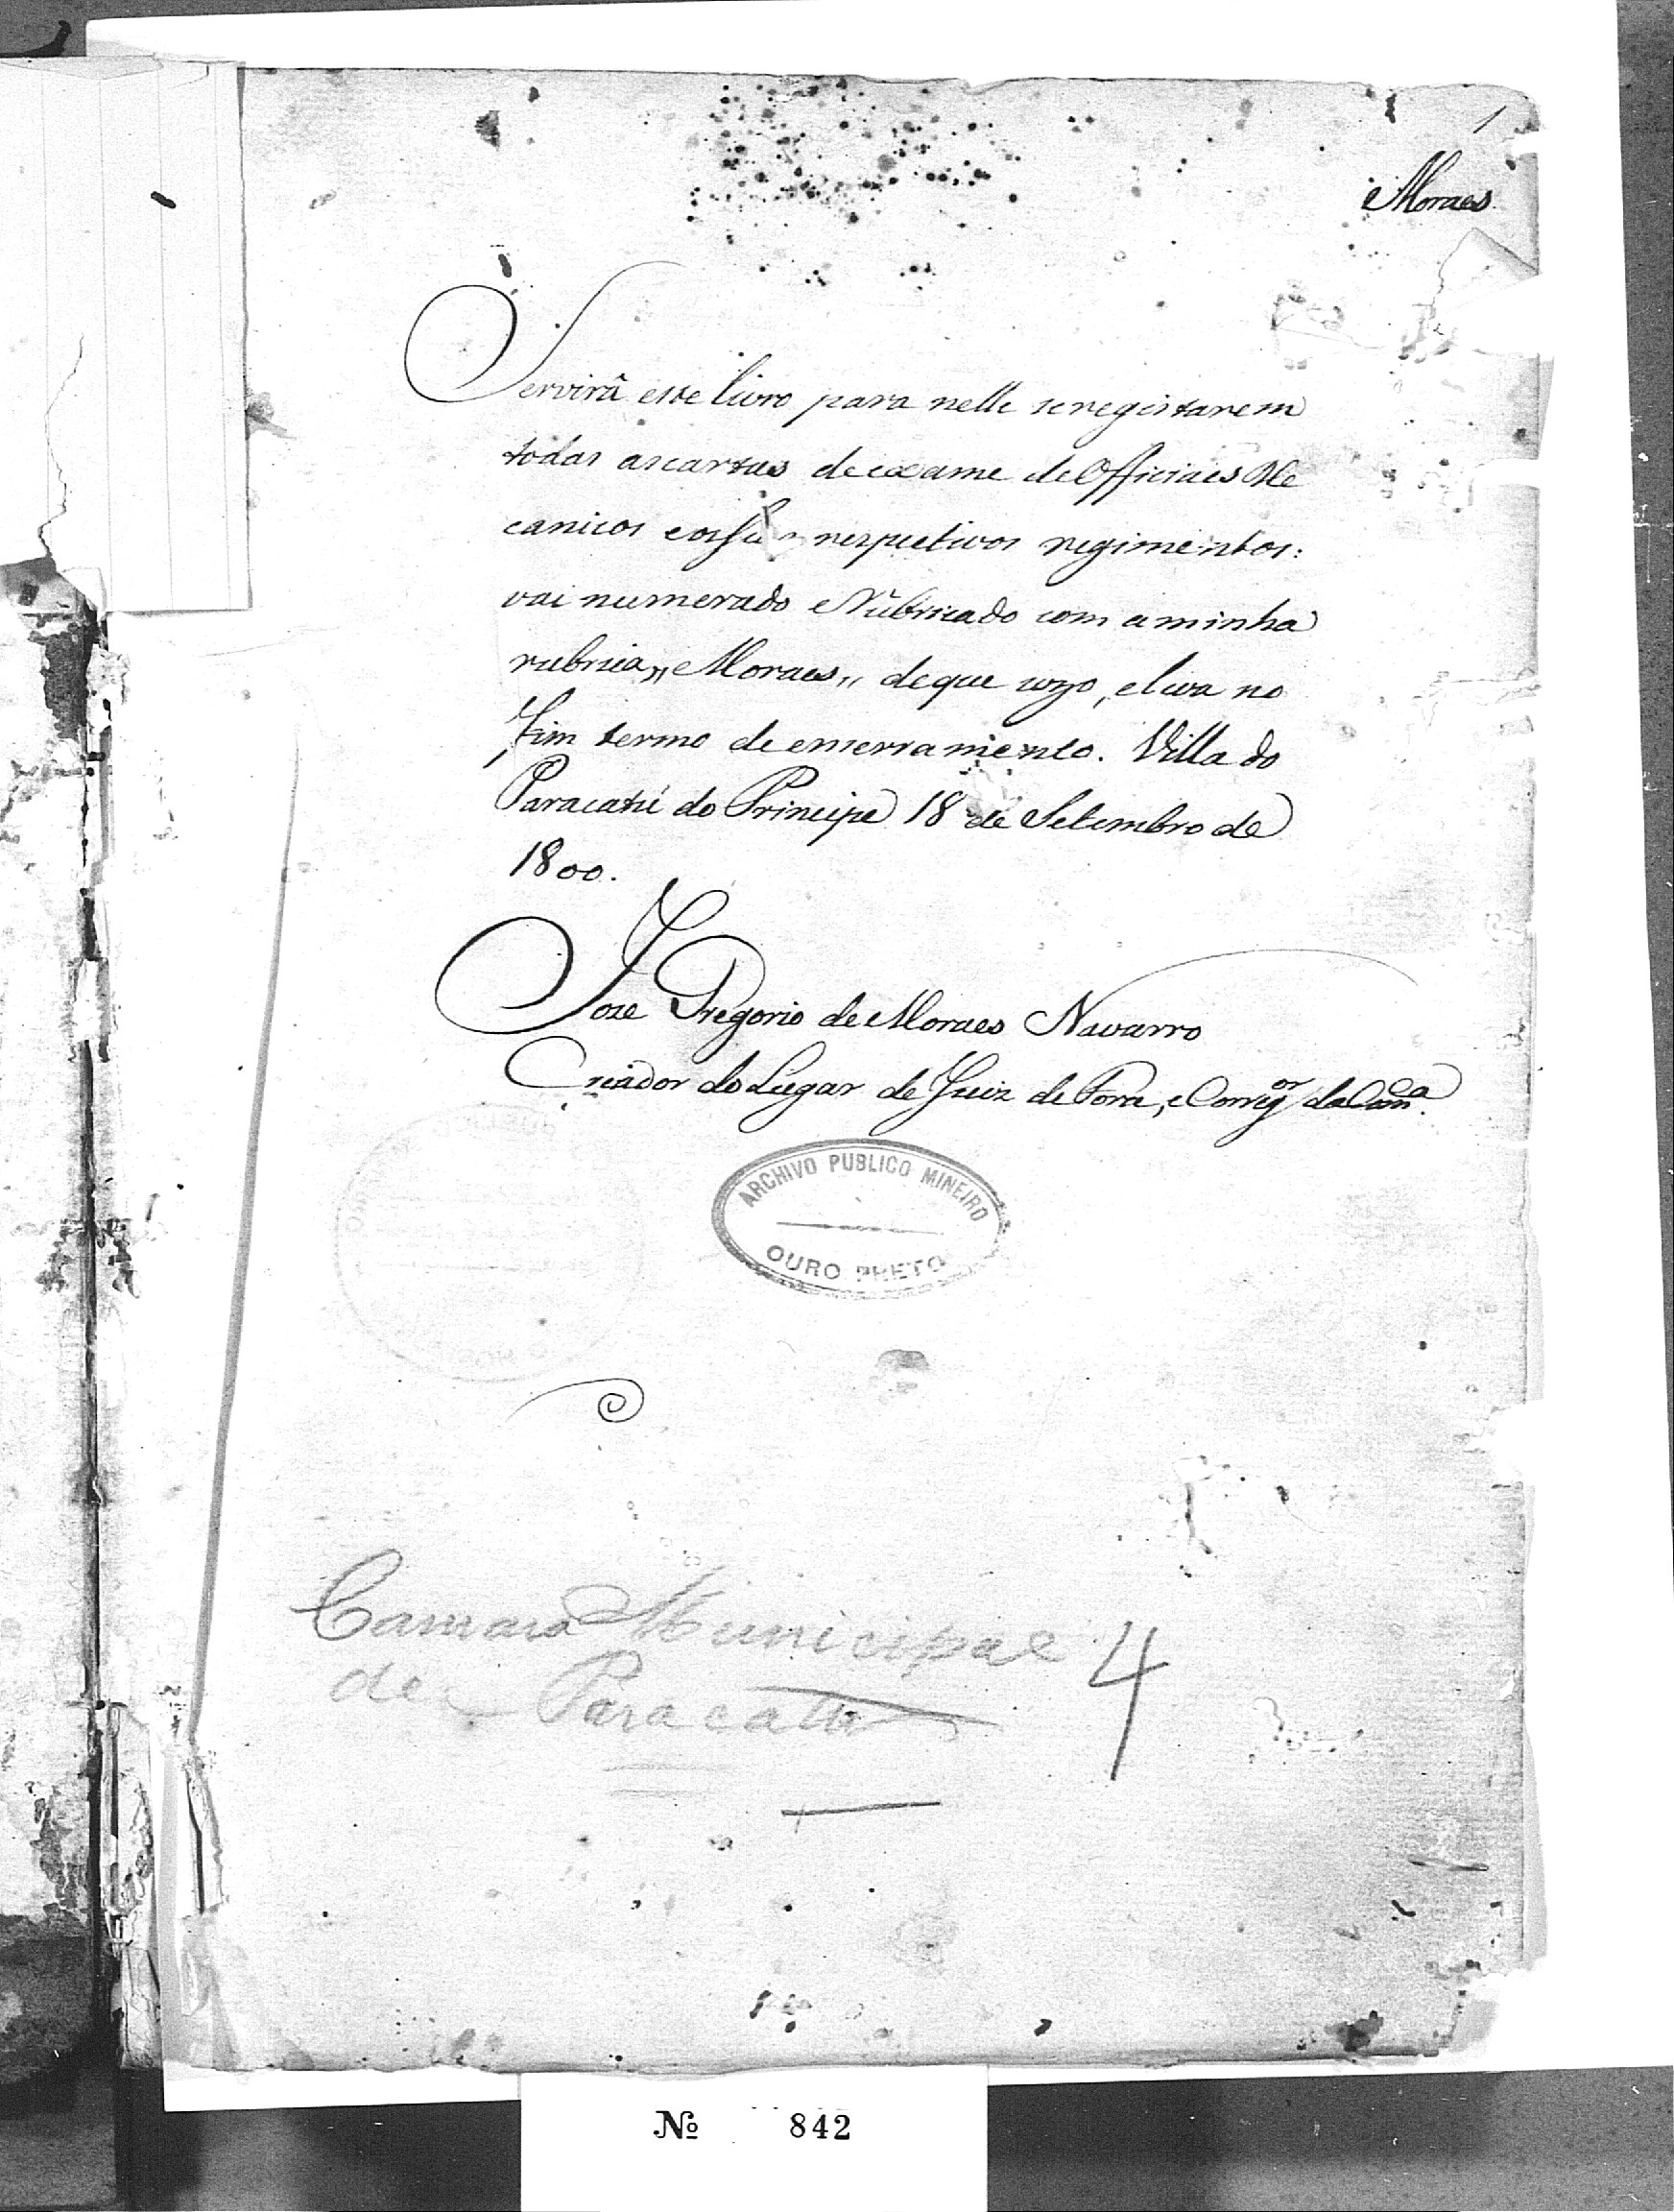 1
Moraes
Servirâ este livro para nelle se registarem
todas as cartas de exame de Officiaes Me
canicos e os seus respectivos regimentos:
vai numerado e Rubricado com a minha
rubrica,, Moraes,, de que uzo, e leva no
Fim termo de encerramento. Villa do
Paracatú do Principe 18 de Setembro de
1800.
Joze Gregorio de Moraes Navarro
Criador do Lugar de Juiz de Fora, e Correg.or da Com.ca
ARCHIVO PUBLICO MINEIRO
OURO PRETO
Camara Municipal 4
de Paracatu
Nº 842